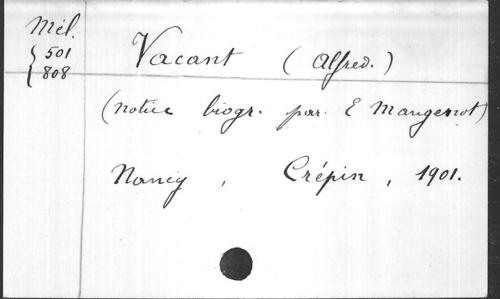 Mél.
501
808
Vacant (Alfred.)
(notice biogr. par. E Mangenot)
Nancy, Crépin, 1901.